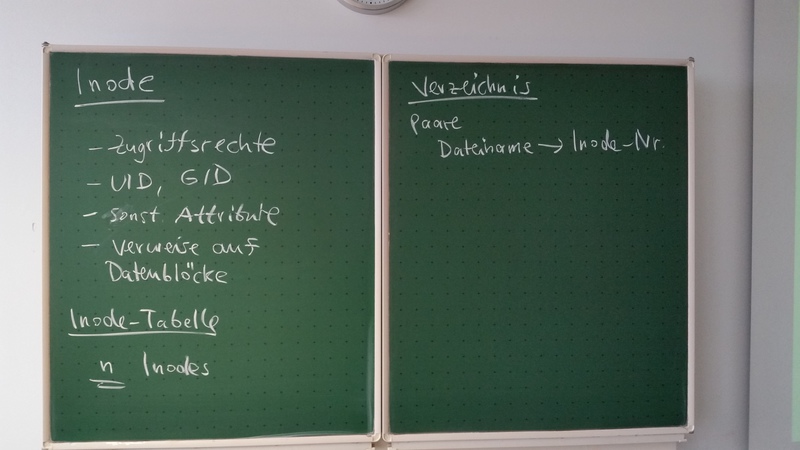 Inode
- Zugriffsrechte
- UID, GID
- sonst. Attribute
- Verweise auf
Datenblöcke
Inode-Tabelle
n Inodes
Verzeichnis
Paare
Dateiname → Inode-Nr.